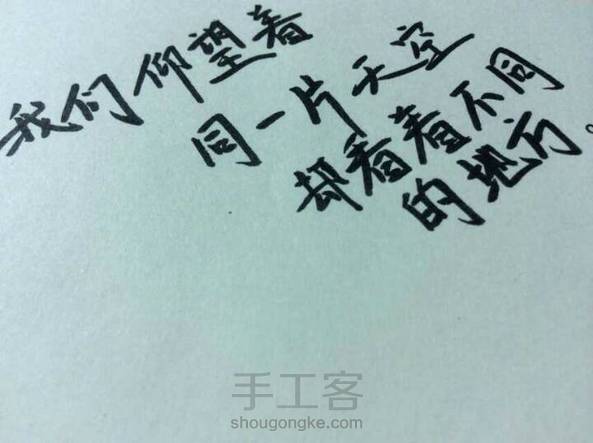 我们仰望着
同一片天空
却看着不同
的地方。
手工客
shougongke.com